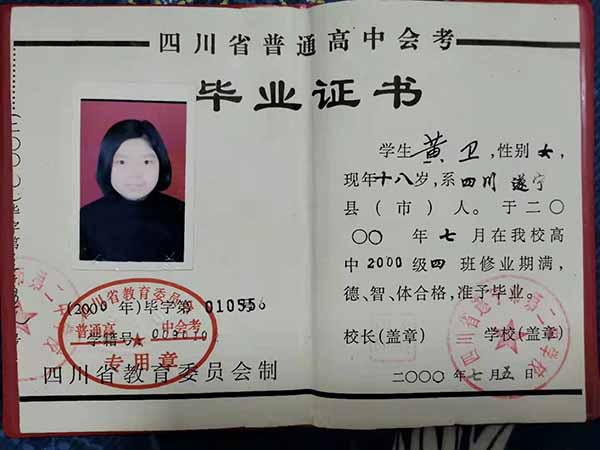 四川省普通高中会考
毕业证书
学生 黄卫,性别女,
现年十八岁,系四川 遂宁
县(市)人。于二〇
〇〇 年 七 月在我校高
中2000级四 班修业期满,
德、智、体合格,准予毕业。
校长(盖章) 学校(盖章)
二〇〇〇 年七月五日
四川省教育委员会
(2000 年)毕字第 010556
普通高 中会考
学籍号
专用章
四川省教育委员会制